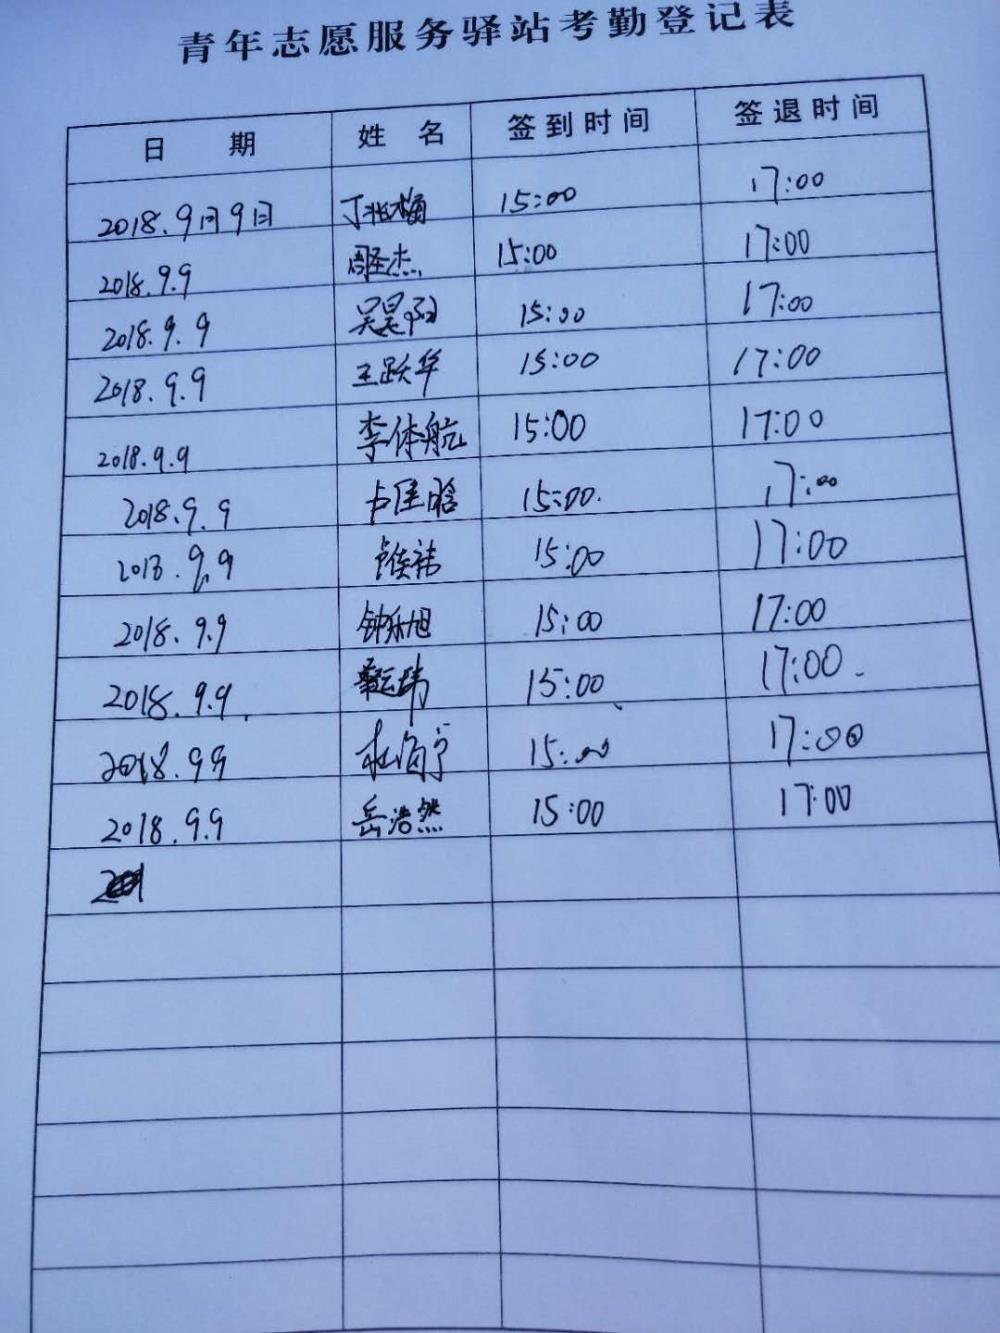 青年志愿服务驿站考勤登记表
日 期 姓 名 签到时间 签退时间
2018.9月9日 丁兆梅 15:00 17:00
2018.9.9 周圣杰 15:00 17:00
2018.9.9 吴昊阳 15:00 17:00
2018.9.9 王跃华 15:00 17:00
2018.9.9 李体航 15:00 17:00
2018.9.9 卢佳晗 15:00. 17:00
2018.9.9 15:00 17:00
2018.9.9 钟乐旭 15:00 17:00
2018.9.9. 15:00 17:00.
2018.99 杜海宁 15:00 17:00
2018.9.9 岳浩然 15:00 17:00